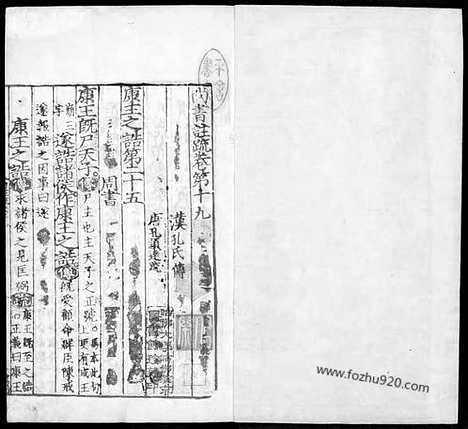 尚書註疏卷第十九
漢孔氏傳
唐孔穎達疏
康王之誥第二十五
周書
康王既尸天子尸主也主天子之正號○馬本此句上更有成王
崩三字遂誥諸侯作康王之誥既受顧命群臣陳戒
遂報誥之因事曰遂
康王之誥求諸侯之見匡弼康王既至之誥○正義曰康王
www.fozhu920.com